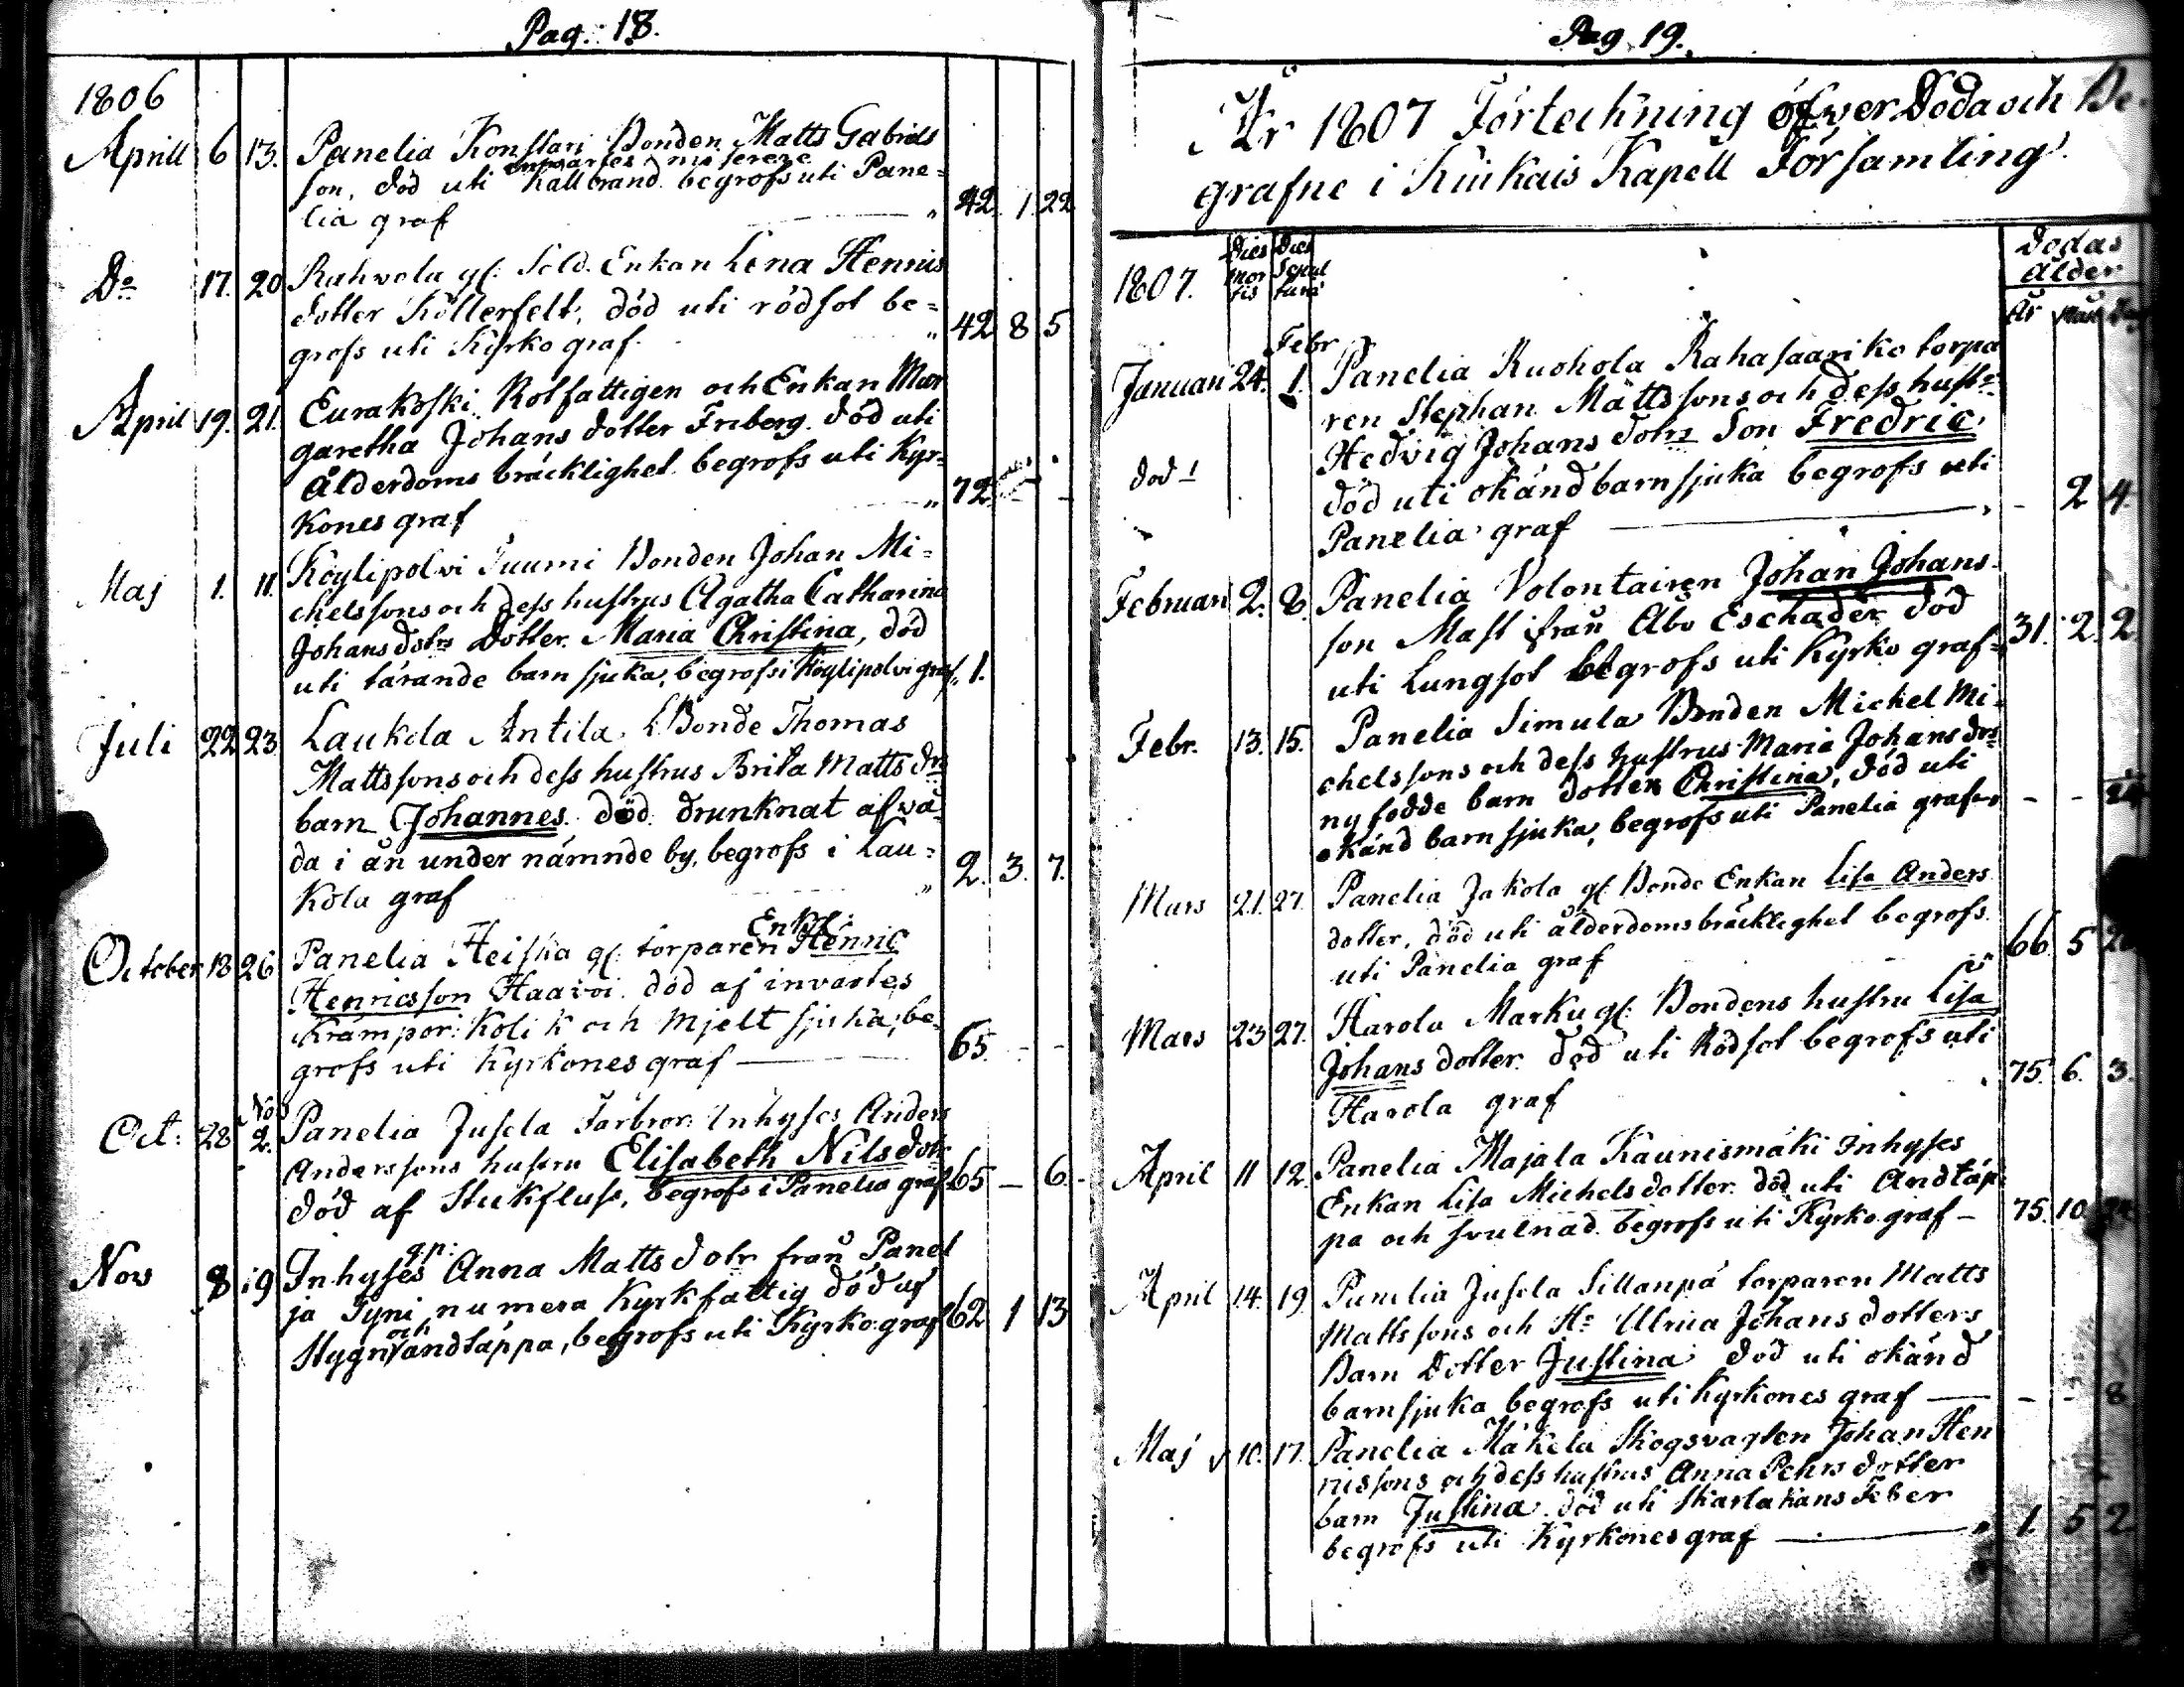 Pag. 18.
1806
Aprill 6 13. Panelia Konstari Bonden Matts Gabriels
son, död uti Kallbrand begrofs uti Pane-
lia graf " 42. 1. 22
Do 17. 20 Ruhvola gl. Sold. Enkan Lena Henrics
dotter Köllerfelt, död uti rödsot be-
grofs uti Kyrko graf. " 42 8 5
April 19. 21. Eurakoski Rotfattigen och Enkan Mar
garetha Johans dotter Friberg. död uti
Ålderdoms bräcklighet begrofs uti Kyr-
kones graf " 72. - -
Maj 1. 11. Köylipolvi Tuumi Bonden Johan Mi-
chelssons och dess hustrus Agatha Catharina
Johans dotrs Dotter Maria Christina, död
uti tärande barn sjuka, begrofs i Köylipolvi graf " 1.
Juli 22 23 Laukola Antila Bonde Thomas
Mattssons och dess hustrus Brita Matts drs
barn Johannes. död. drunknat af vå
da i ån under nämnde by, begrofs i Lau-
kola graf " 2. 3. 7.
Enkl:
October 18 26 Panelia Heiska gl. torparen Henric
Henricsson Haavoi. död af invartes
Krämpor: Kolik och Mjeltsjuka, be-
grofs uti Kyrkones graf 65. - -
Nov
Oct: 28 2. Panelia Jusela Farbror Inhyses Anders
Anderssons hustru Elisabeth Nils dotr
död af Stickfluss, begrofs i Panelia graf 65 - 6.
qp:
Nov 8 19 Inhyses Anna Matts dotr från Panel
ja Tyni numera Kyrkfattig död af
och
Stygn andtäppa, begrofs uti Kyrko graf 62 1 13
Pag. 19.
År 1807 Förteckning öfver Döda och Be-
grafne i Kiukais Kapell Församling.
1807. Dies mor tis Dies Sepul turæ
Dödas
ålder
År Mån Dag
Febr
Januari 24. 1. Panelia Ruohola Rahasaari ko torpa
ren Stephan Mattssons och dess hustr
Hedvig Johans dotrs Son Fredric
död uti okänd barnsjuka begrofs uti
Panelia graf - 2 4.
Februari 2. 8. Panelia Volontairen Johan Johans-
son Mast ifrån Åbo Eschader död
uti Lungsot begrofs uti Kyrko graf 31. 2. 2
Febr. 13. 15. Panelia Simula Bonden Mickel Mi-
chelssons och dess hustrus Maria Johans drs
nyfödde barn dotter Christina, död uti
okänd barnsjuka, begrofs uti Panelia graf - -
Mars 21. 27. Panelia Jakola gl. Bonde Enkan Lisa Anders
dotter, död uti ålderdomsbräcklighet begrofs
uti Panelia graf 66. 5
Mars 23 27. Harola Marku gl. Bondens hustru Lisa
Johans dotter. död uti Rödsot begrofs uti
Harola graf 75. 6. 3.
April 11 12. Panelia Majala Kaunismäki Inhyses
Enkan Lisa Michels dotter. död uti Andtäp
pa och svulnad begrofs uti Kyrko graf - 75. 10
April 14. 19. Panelia Jusela Sillanpä torparen Matts
Mattssons och H: Ulrica Johans dotters
Barn Dotter Justina död uti okänd
barnsjuka begrofs uti Kyrkones graf - - 8
Maj 10. 17. Panelia Mäkela Skogsvagten Johan Hen
ricssons och dess hustrus Anna Pehrs dotter
barn Justina. död uti Skarlakans Feber
begrofs uti Kyrkones graf 1 5 2